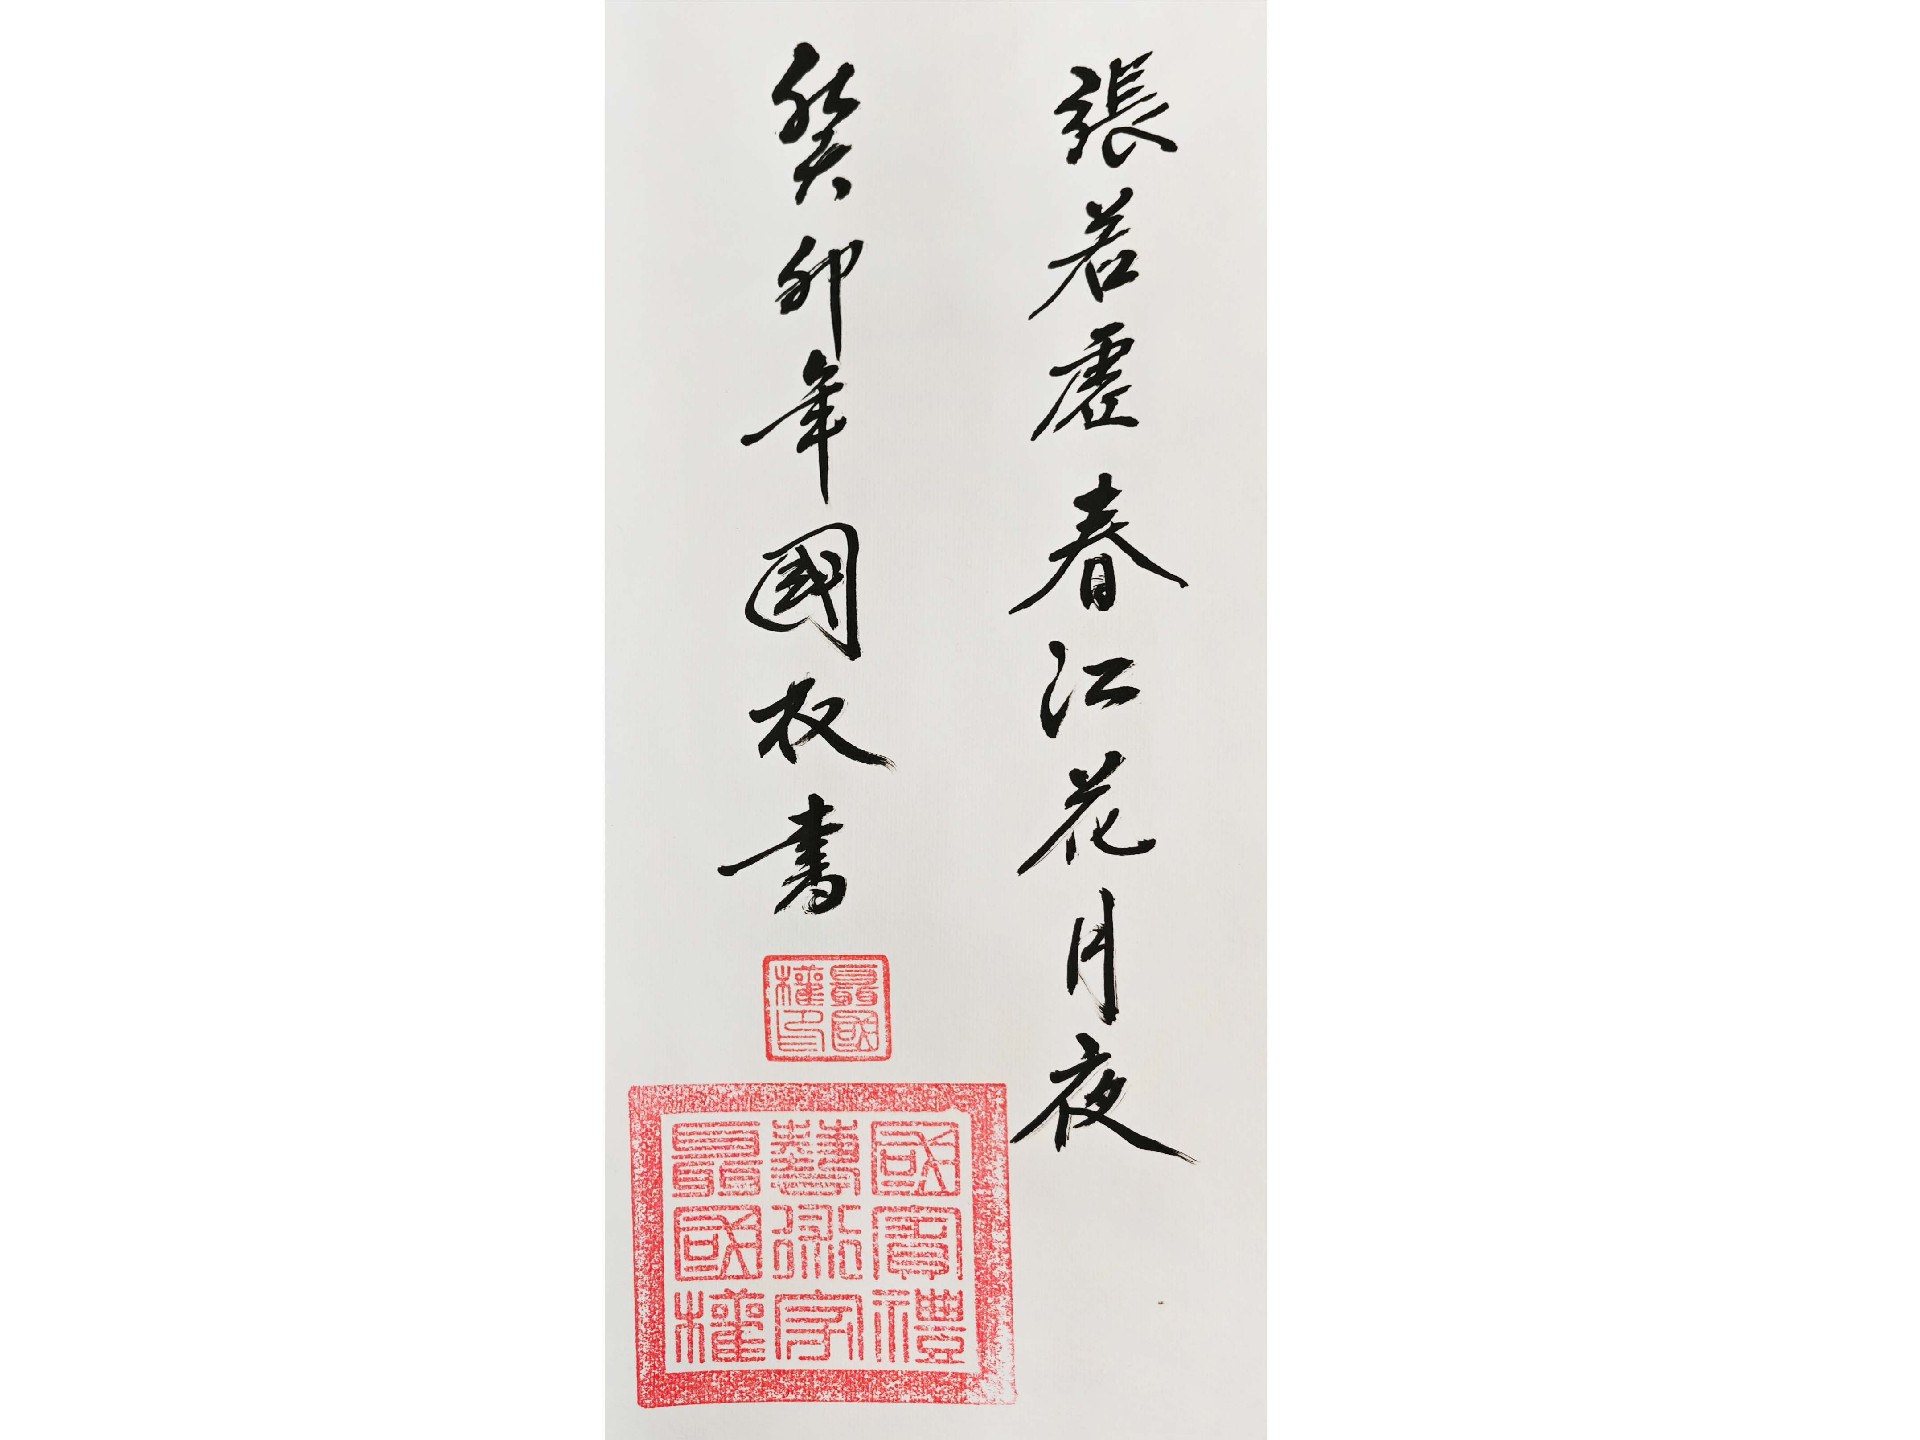 張若虛春江花月夜
癸卯年國权書
國
權印
國賓禮
藝術家
國權